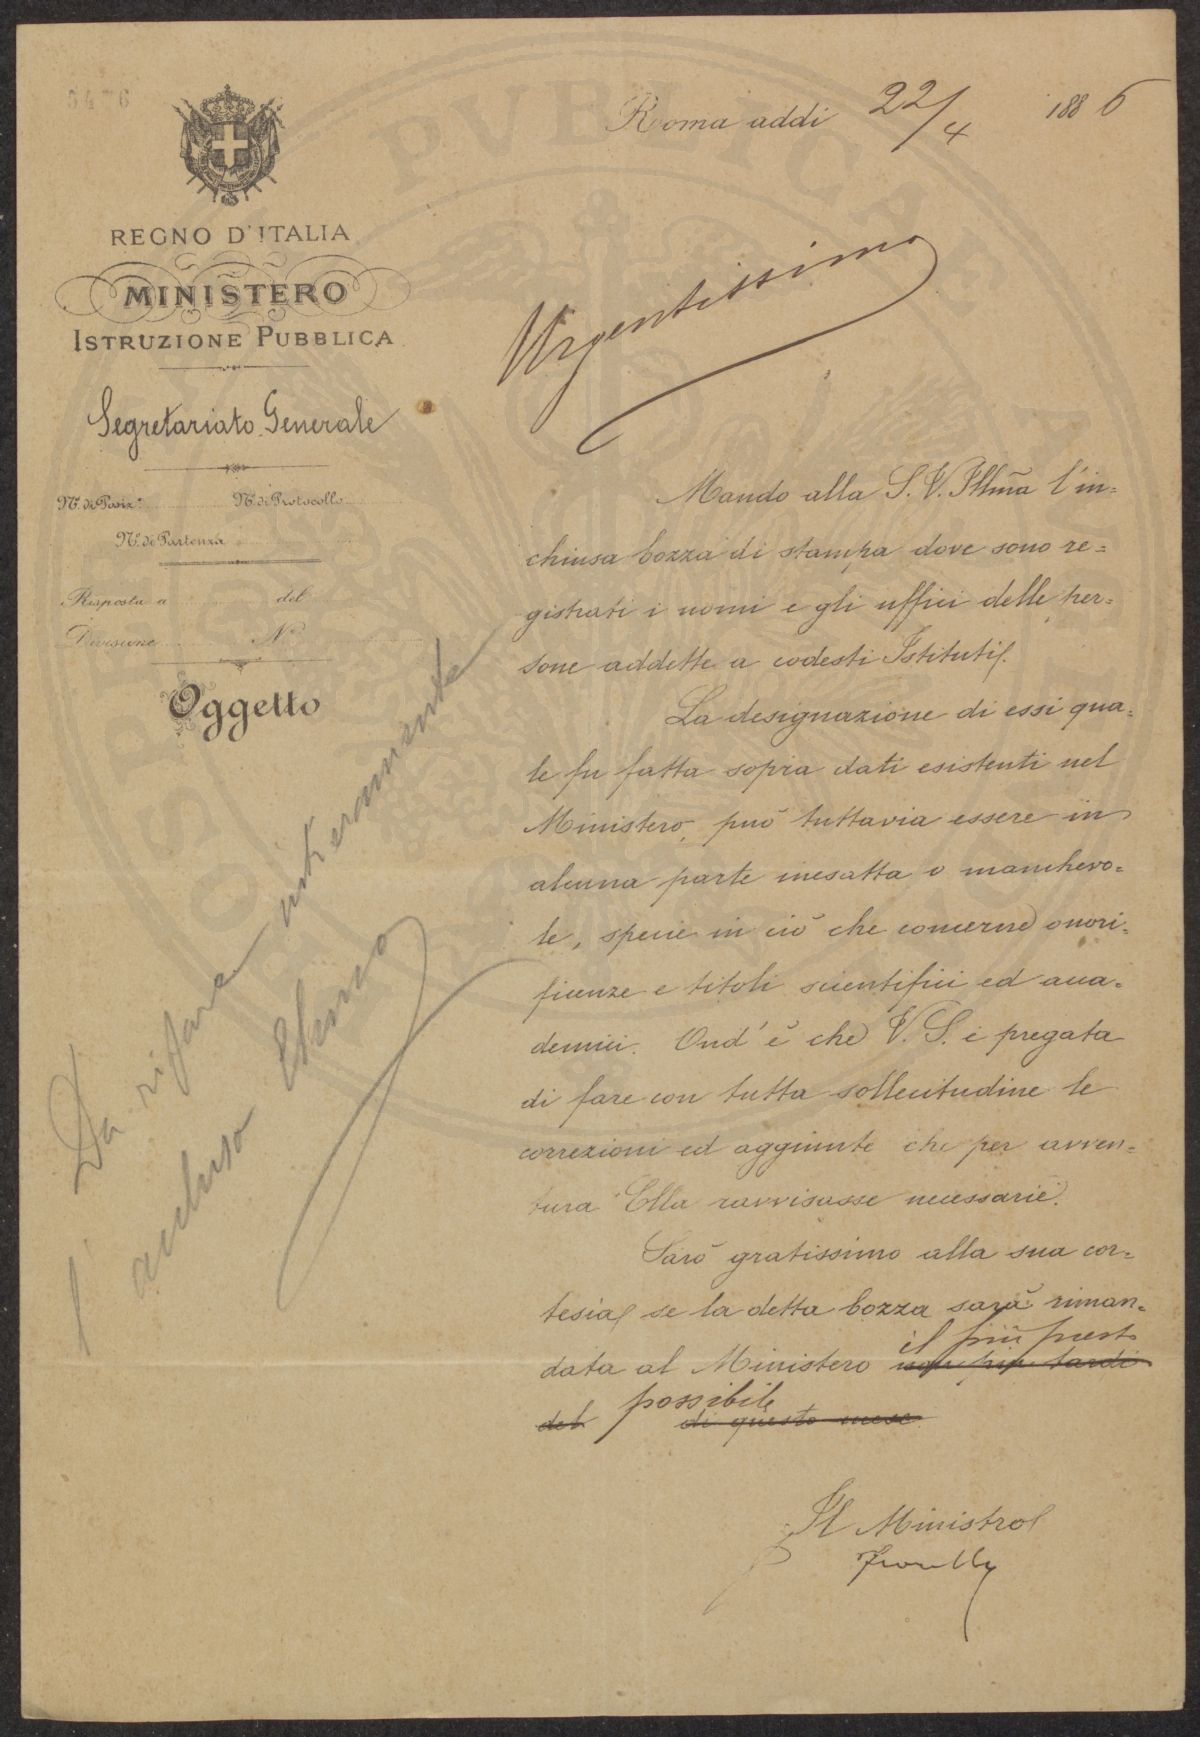 5476
Roma addi 22/4 1886
REGNO D'ITALIA
MINISTERO
ISTRUZIONE PUBBLICA
Segretariato Generale
Nº. di Posiz.ᵉ Nº. di Protocollo
Nº. di Partenza
Risposta a del
Divisione Nº
Oggetto
Urgentissimo
Mando alla S. V. Illm̃a l'in=
chiusa bozza di stampa dove sono re=
gistrati i nomi e gli uffici delle per=
sone addette a codesti Istituti.
La designazione di essi qua=
le fu fatta sopra dati esistenti nel
Ministero, può tuttavia essere in
alcuna parte inesatta o manchevo=
le, specie in ciò che concerne onori=
ficenze e titoli scientifici ed acca=
demici. Ond' è che V. S. è pregata
di fare con tutta sollecitudine le
correzioni ed aggiunte che per avven=
tura Ella ravvisasse necessarie.
Sarò gratissimo alla sua cor=
tesia se la detta bozza sarà riman=
il più presto
data al Ministero non più tardi
del possibile di questo mese
Il Ministro
Da rifare interamente
l'accluso